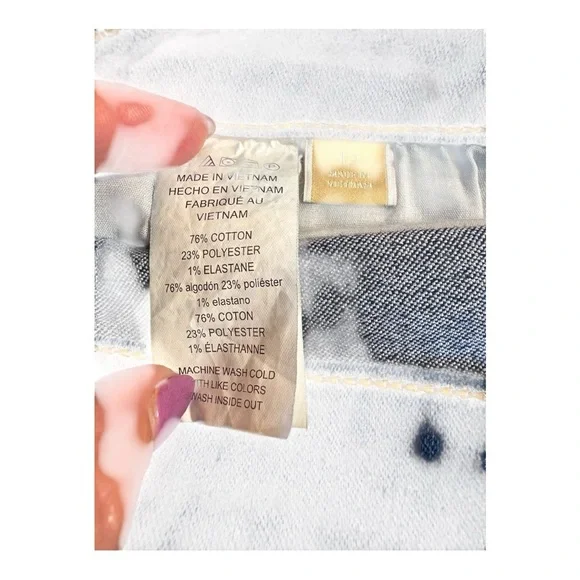 MADE IN VIETNAM
HECHO EN VIETNAM
FABRIQUÉ AU
VIETNAM
76% COTTON
23% POLYESTER
1% ELASTANE
76% algodón 23% poliéster
1% elastano
76% COTON
23% POLYESTER
1% ÉLASTHANNE
MACHINE WASH COLD
WITH LIKE COLORS
WASH INSIDE OUT